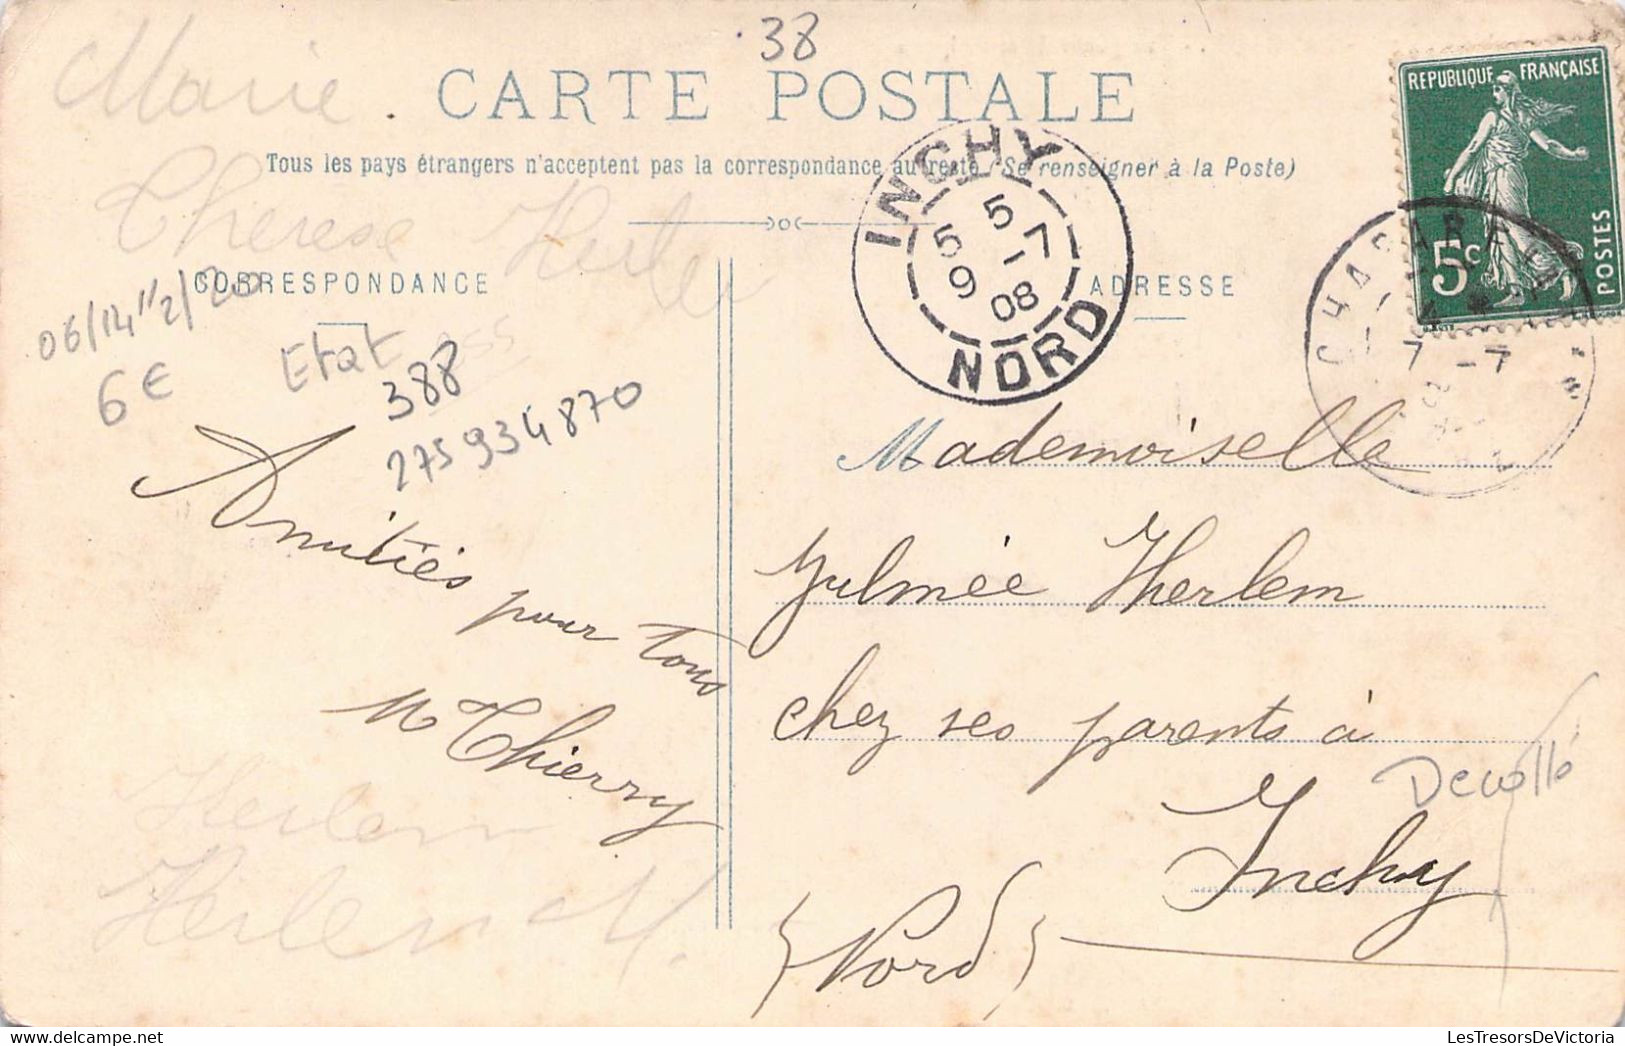 38
Marie
CARTE POSTALE
Tous les pays étrangers n'acceptent pas la correspondance au recto (Se renseigner à la Poste)
Therese Herlem
REPUBLIQUE FRANÇAISE
5c
POSTES
INCHY
5 5
7
1
9
08
NORD
7 -7
CORRESPONDANCE
ADRESSE
06/14"/2/20
6€
Etat
388
275934870
Amitiés pour tous
M Thierry
Herlem
Herlem M.
Mademoiselle
Zulmée Herlem
chez ses parents à
Decollé
Inchy
(Nord)
LesTresorsDeVictoria